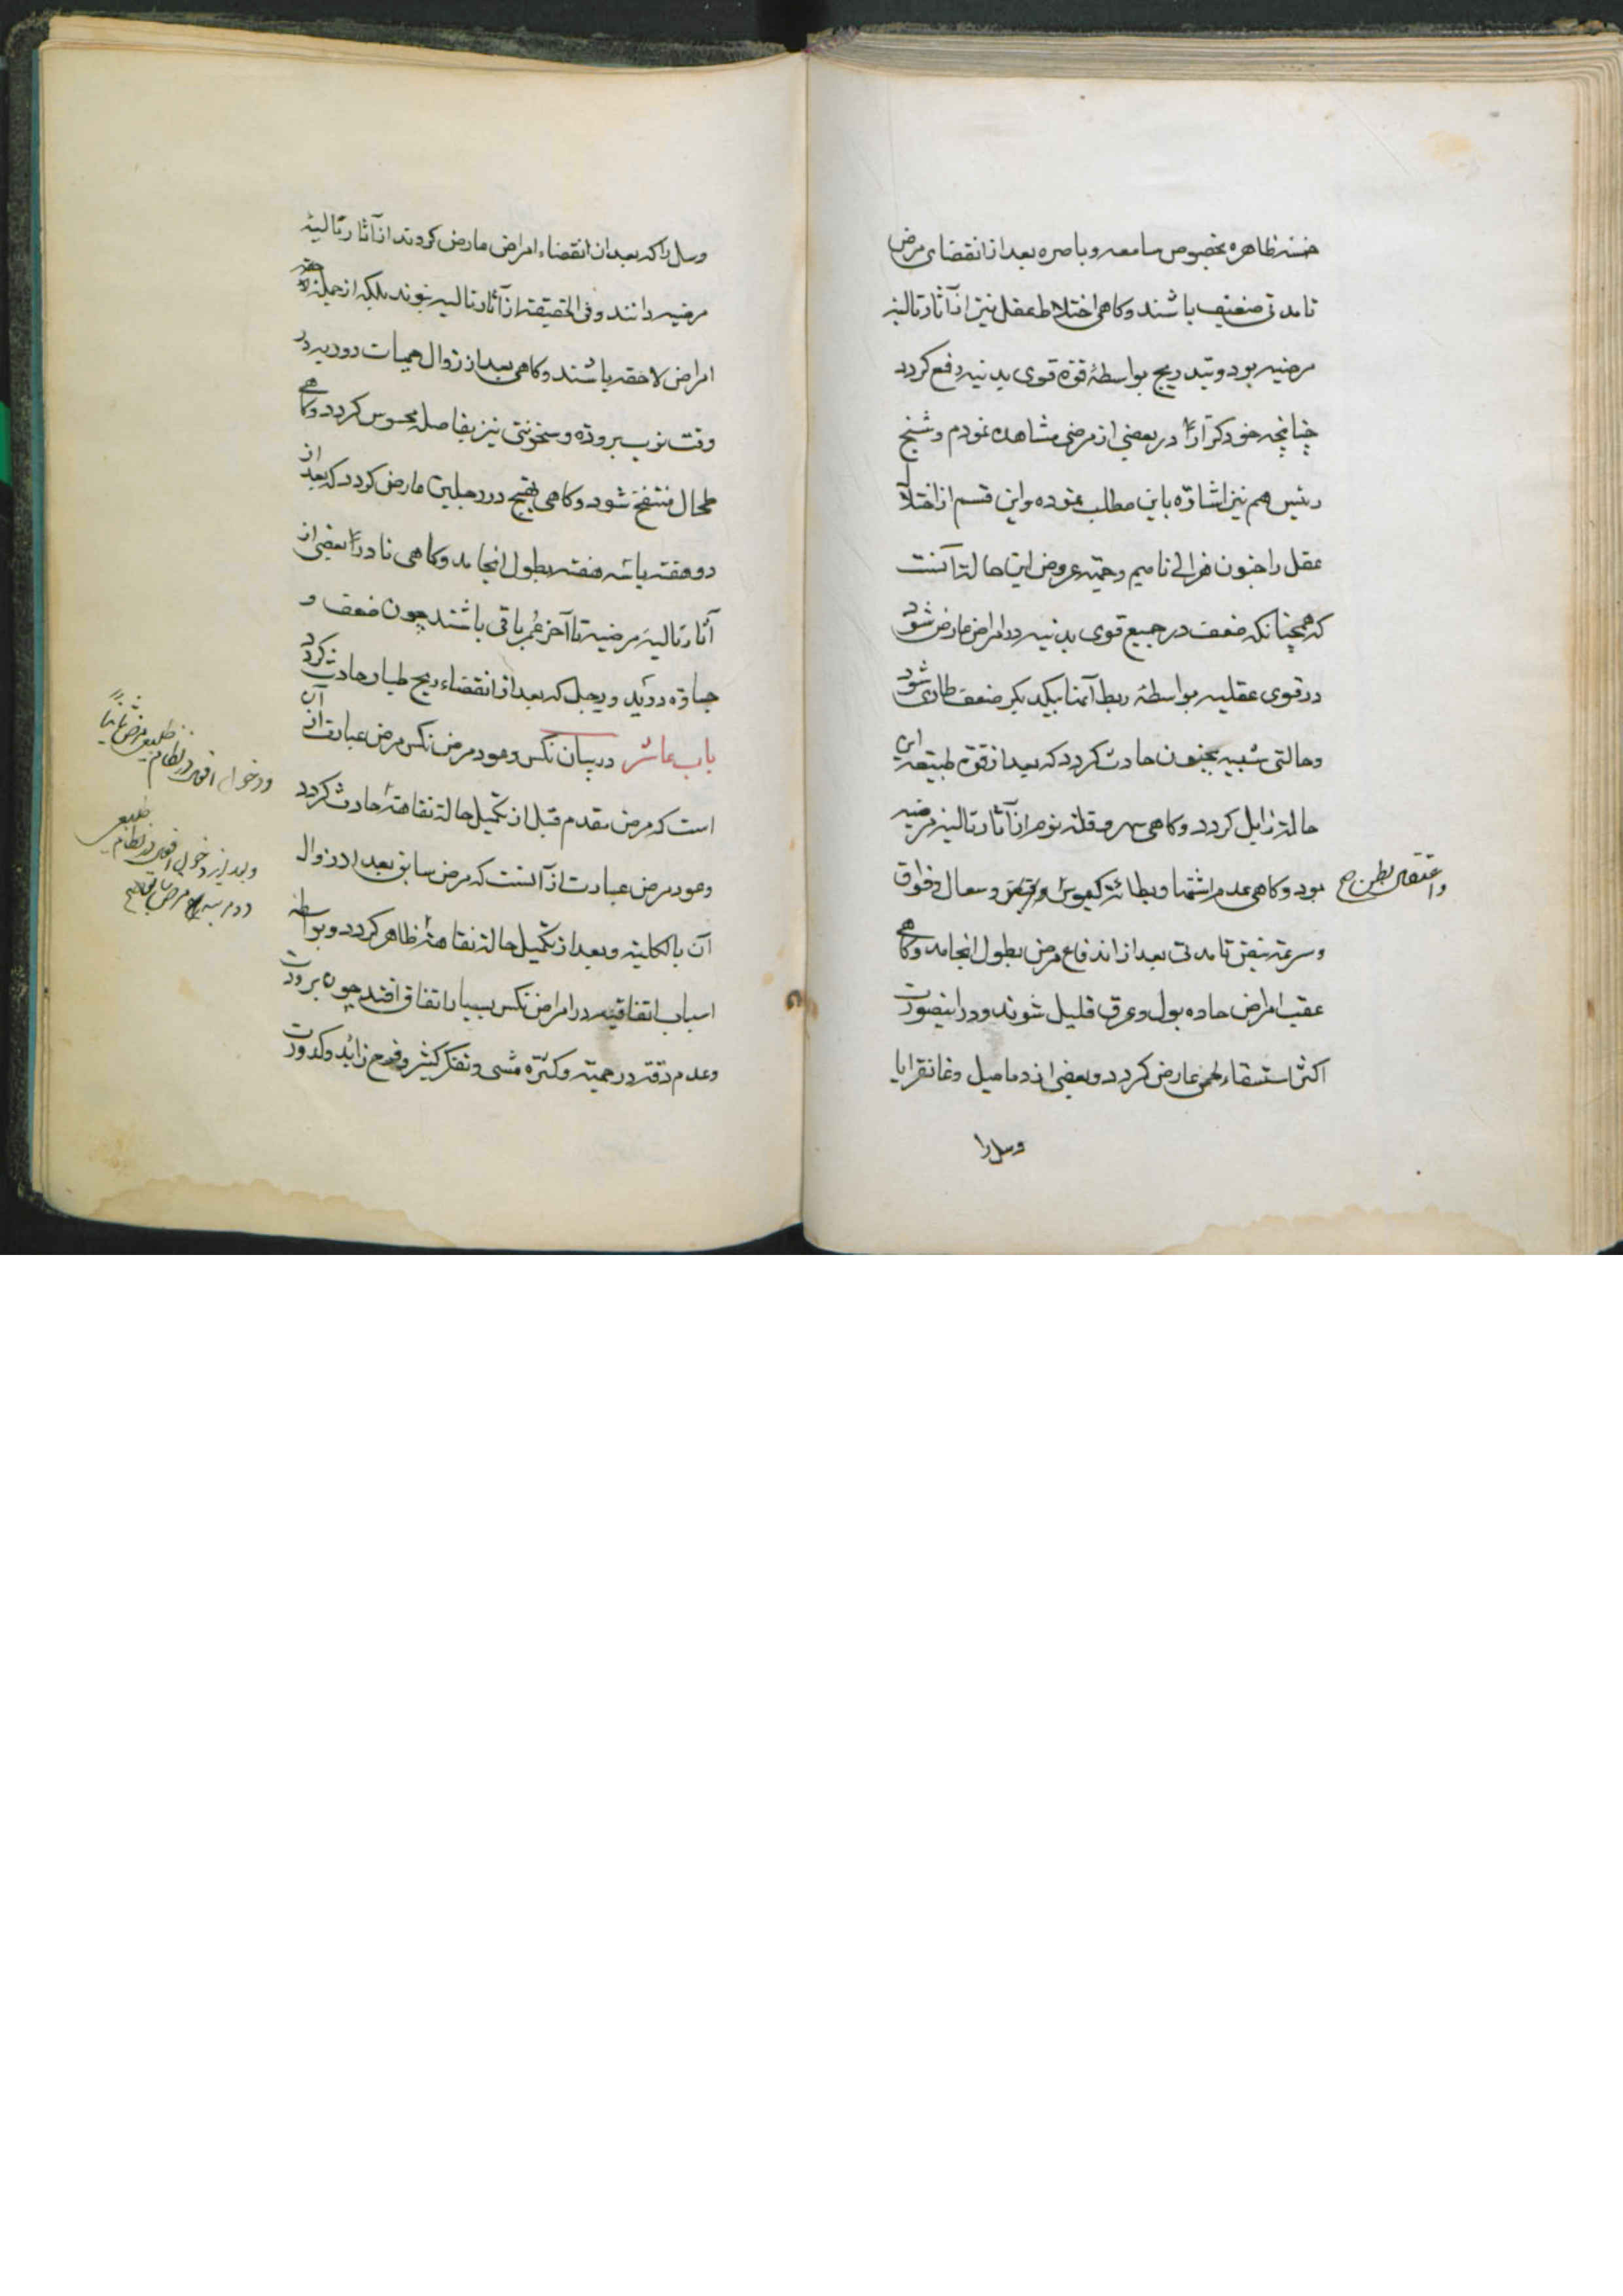 خمسه ظاهره بخصوص سامعه و باصره بعد از انقضای مرض
تا مدتی ضعیف باشند و کاهی اختلاط عقل نیز از آثار تالیه
مرضیه بود و بتدریج بواسطهٔ قوة قوی بدنیه رفع کردد
چنانچه خود کراراً در بعضی از مرضی مشاهده نمودم و شیخ
رئیس هم نیز اشارة باین مطلب نموده و این قسم از اختلال
عقل را جنون هزالی نامیم و عروض این حالة آنست
که همچنانکه ضعف در جمیع قوی بدنیه در امراض عارض شود
در قوی عقلیه بواسطهٔ ربط آنها بیکدیکر ضعف طاری شود
و حالتی شبیه بجنون حادث کردد که بعد از قوة طبیعة این
حالة زایل کردد و کاهی سهر و قلة نوم از آثار تالیه مرضیه
بود و کاهی عدم اشتها و بطائة کیموس و سعال و فواق
واعتقال بطن صح
و سرعة نبض تا مدتی بعد از اندفاع مرض بطول انجامد و کاهی
عقب امراض حاده بول و عرق قلیل شوند و در اینصورت
اکثر استسقاء لحمی عارض کردد و بعضی از دمامیل و غانقرایا
وسل را
وسل را که بعد از انقضاء امراض عارض کردند از آثار تالیهٔ
مرضیه دانند و فی الحقیقة از آثار تالیه نبوند بلکه از جمله
امراض لاحقه باشند و کاهی بعد از زوال حمیات دوریه در
وقت نوب برودة و سخونتی نیز بفاصله محسوس کردد و کاهی
طحال منتفخ شود و کاهی تهیج در رجلین عارض کردد که بعد از
دو هفته یا سه هفته بطول انجامد و کاهی نادراً بعضی از
آثار تالیهٔ مرضیه تا آخر عُمر باقی باشند چون ضعف و
جساوة در ید و رجل که بعد از انقضاء ریح طیار حادث کردد
باب عاشر در بیان نکس و عود مرض نکس مرض عبارت از آن
است که مرض مقدم قبل از تکمیل حالة نقاهة حادث کردد
و عود مرض عبارت از آنست که مرض سابق بعد از زوال
آن بالکلیة و بعد از تکمیل حالة نقاهة ظاهر کردد و بواسطه
اسباب اتفاقیه در امراض نکس بسیار اتفاق افتد چون برودت
و عدم دقة در حمیة و کثرة مشی و تفکر کثیر و فرح زائد و کدورت